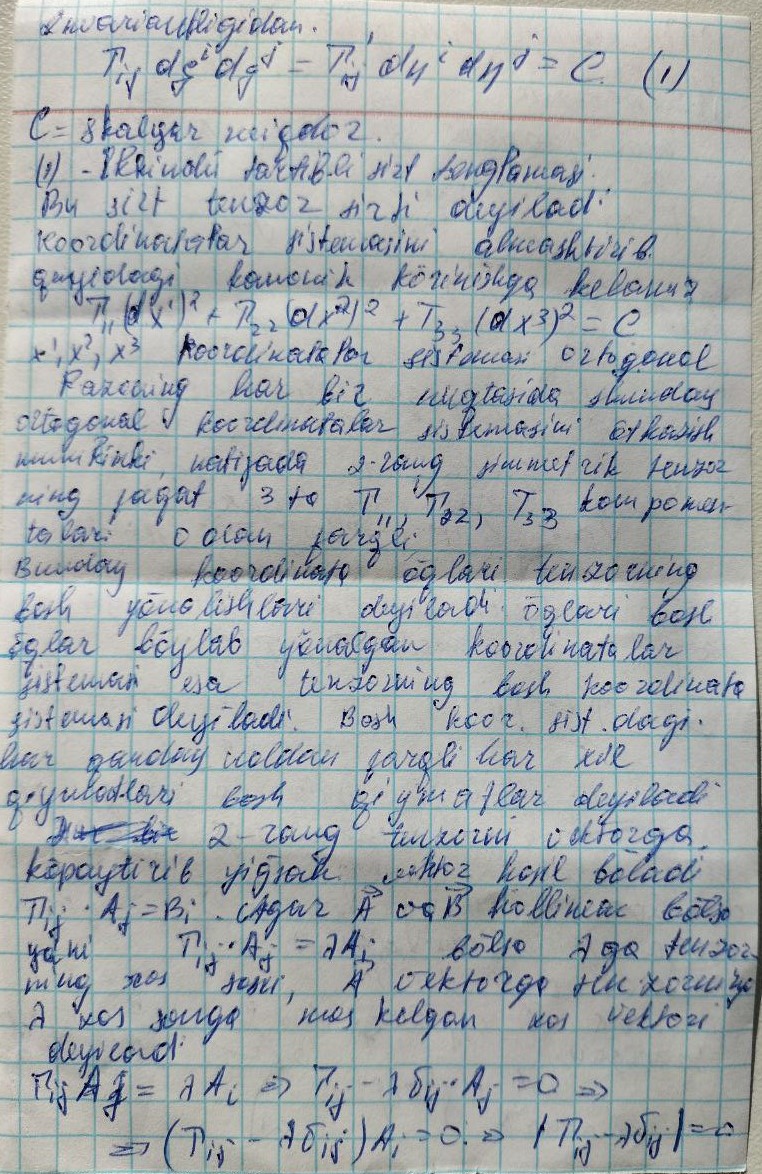 Invariantligidan.
T_ij dξ^i dξ^j = T'_ij dη^i dη^j = C. (1)
C = skalyar miqdor.
(1) - Ikkinchi tartibli sirt tenglamasi.
Bu sirt tenzor sirti deyiladi.
Koordinatalar sistemasini almashtirib
quyidagi kanonik körinishga kelamiz
T_11 (dx^1)^2 + T_22 (dx^2)^2 + T_33 (dx^3)^2 = C
x^1, x^2, x^3 koordinatalar sistemasi ortogonal
Fazoning har bir nuqtasida shunday
ortogonal koordinatalar sistemasini ötkazish
mumkinki, natijada 2-rang simmetrik tenzor
ning faqat 3 ta T_11, T_22, T_33 komponen-
talari 0 dan farqli.
Bunday koordinata öqlari tenzorning
bosh yönalishlari deyiladi. öqlari bosh
öqlar böylab yönalgan koordinatalar
sistemasi esa tenzorning bosh koordinata
sistemasi deyiladi. Bosh koor. sist. dagi
har qanday noldan farqli har xil
qiymatlari bosh qiymatlar deyiladi
2-rang tenzorni vektorga
köpaytirib yiğsak vektor hosil böladi
T_ij · A_j = B_i. Agar A⃗ va B⃗ kollinear bölsa
yani T_ij · A_j = λA_i bölsa λ ga tenzor-
ning xos soni, A⃗ vektorga tenzorning
λ xos songa mos kelgan xos vektori
deyiladi
T_ij A_j = λ A_i ⇒ T_ij - λδ_ij · A_j = 0 ⇒
⇒ (T_ij - λδ_ij) A_i = 0 ⇒ |T_ij - λδ_ij| = 0